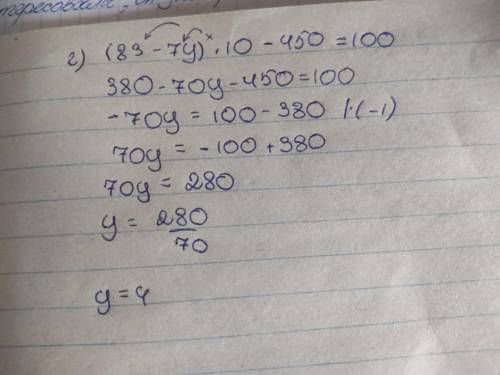 г) (83 - 7y) · 10 - 450 = 100
380 - 70y - 450 = 100
-70y = 100 - 380 | · (-1)
70y = -100 + 380
70y = 280
y = 280/70
y = 4